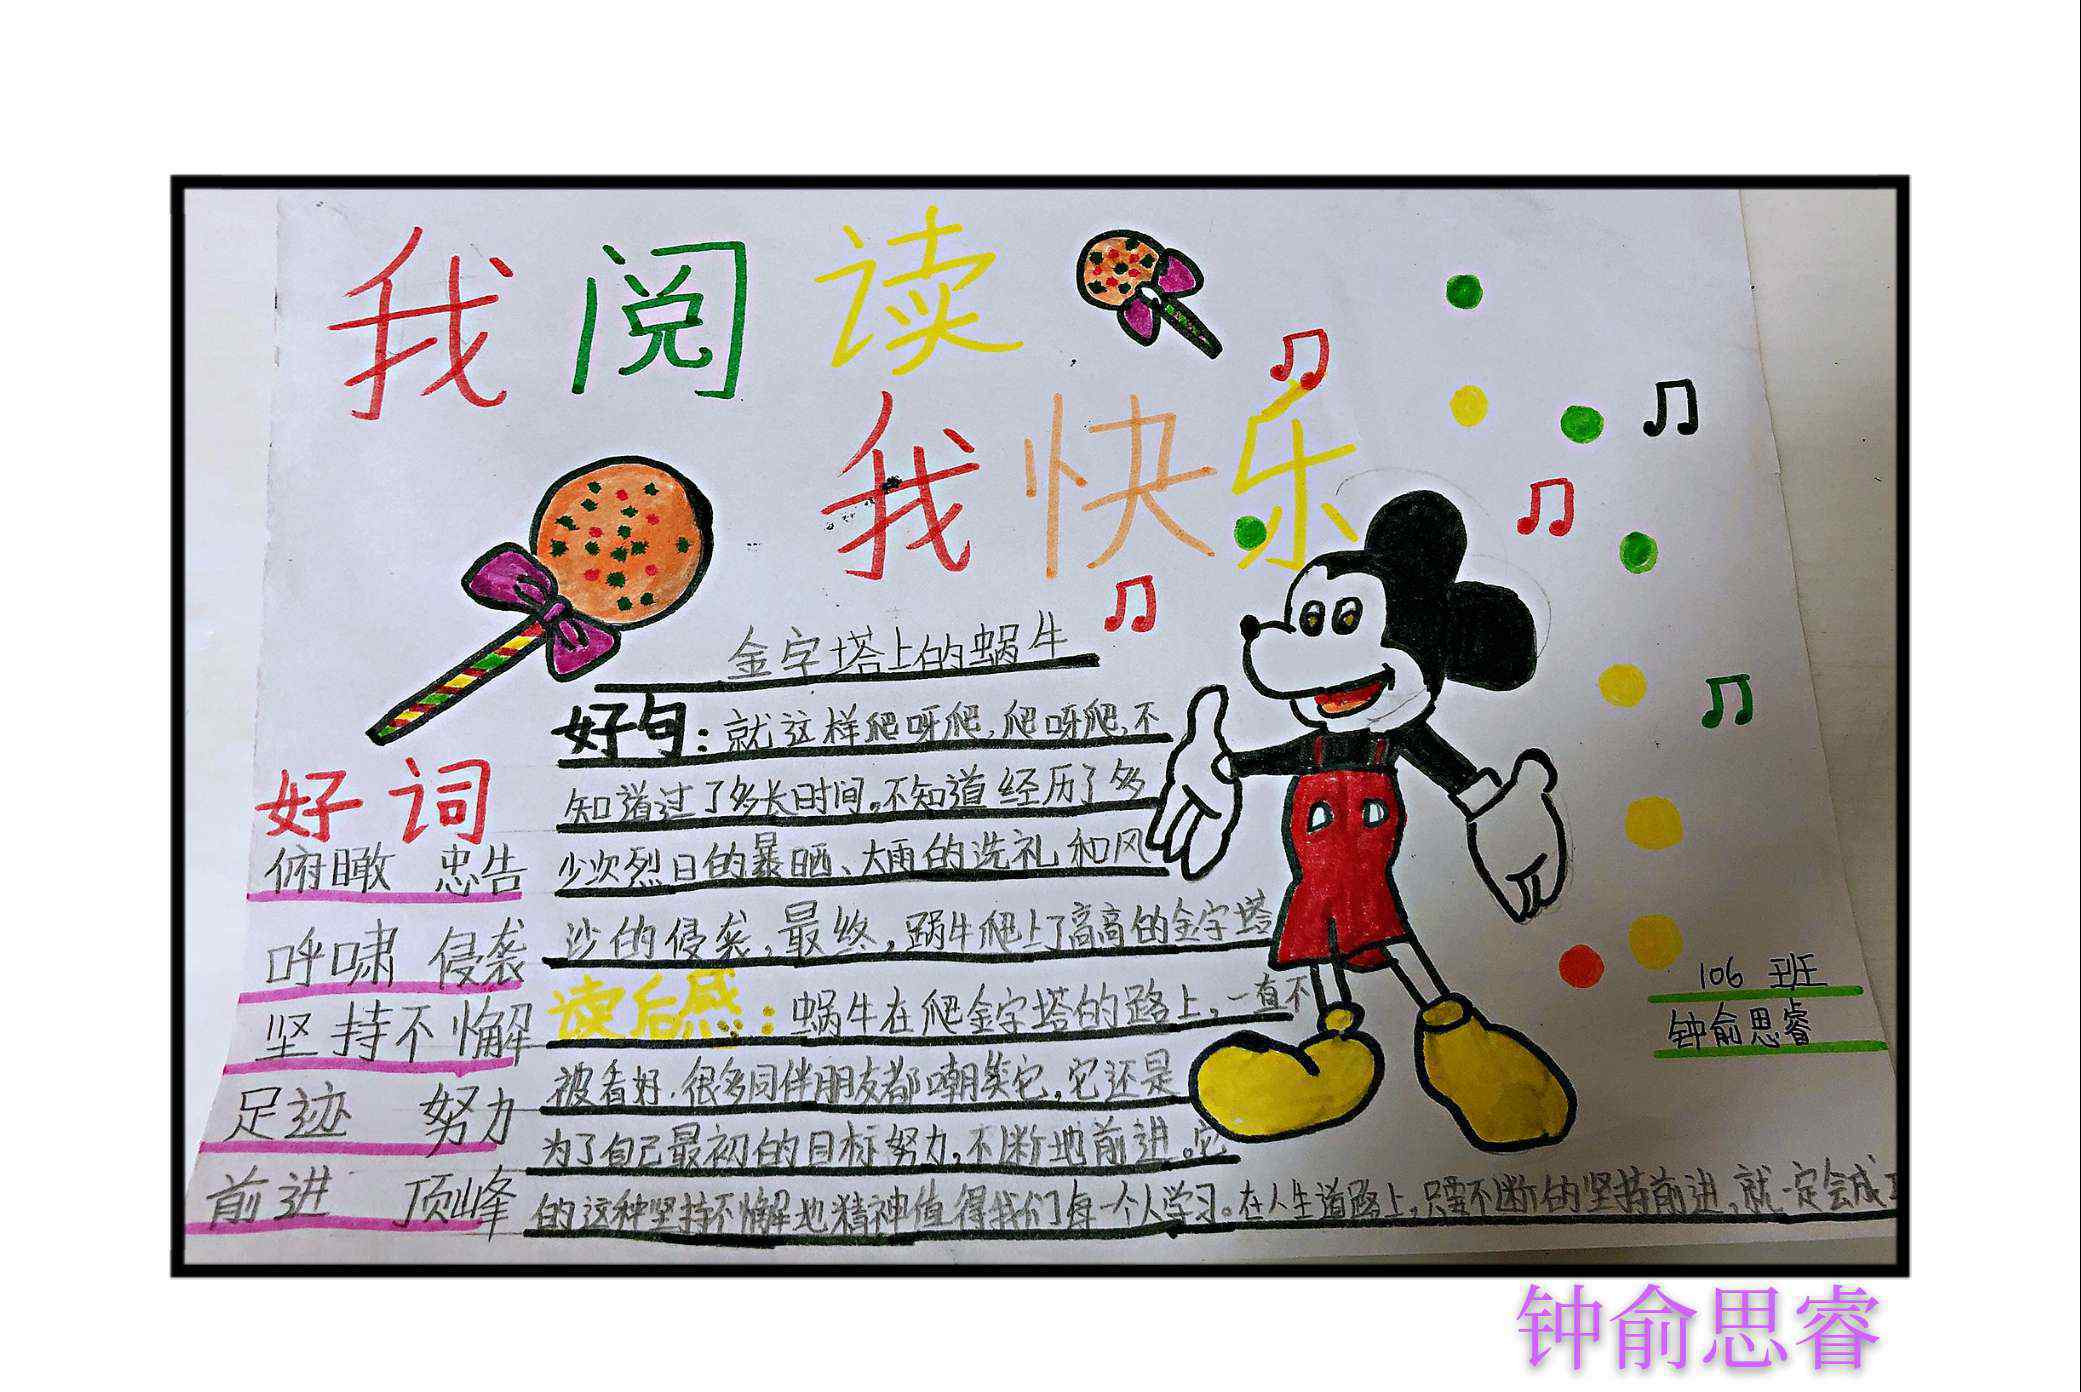 我阅读
我快乐
金字塔上的蜗牛
好句：就这样爬呀爬，爬呀爬，不
知道过了多长时间。不知道经历了多
少次烈日的暴晒、大雨的洗礼和风
沙的侵袭，最终，蜗牛爬上了高高的金字塔
读后感：蜗牛在爬金字塔的路上，一直不
被看好．很多同伴朋友都嘲笑它，它还是
为了自己最初的目标努力，不断地前进。它
的这种坚持不懈地精神值得我们每一个人学习。在人生道路上，只要不断的坚持前进，就一定会成
好词
俯瞰 忠告
呼啸 侵袭
坚持不懈
足迹 努力
前进 顶峰
106 班
钟俞思睿
钟俞思睿